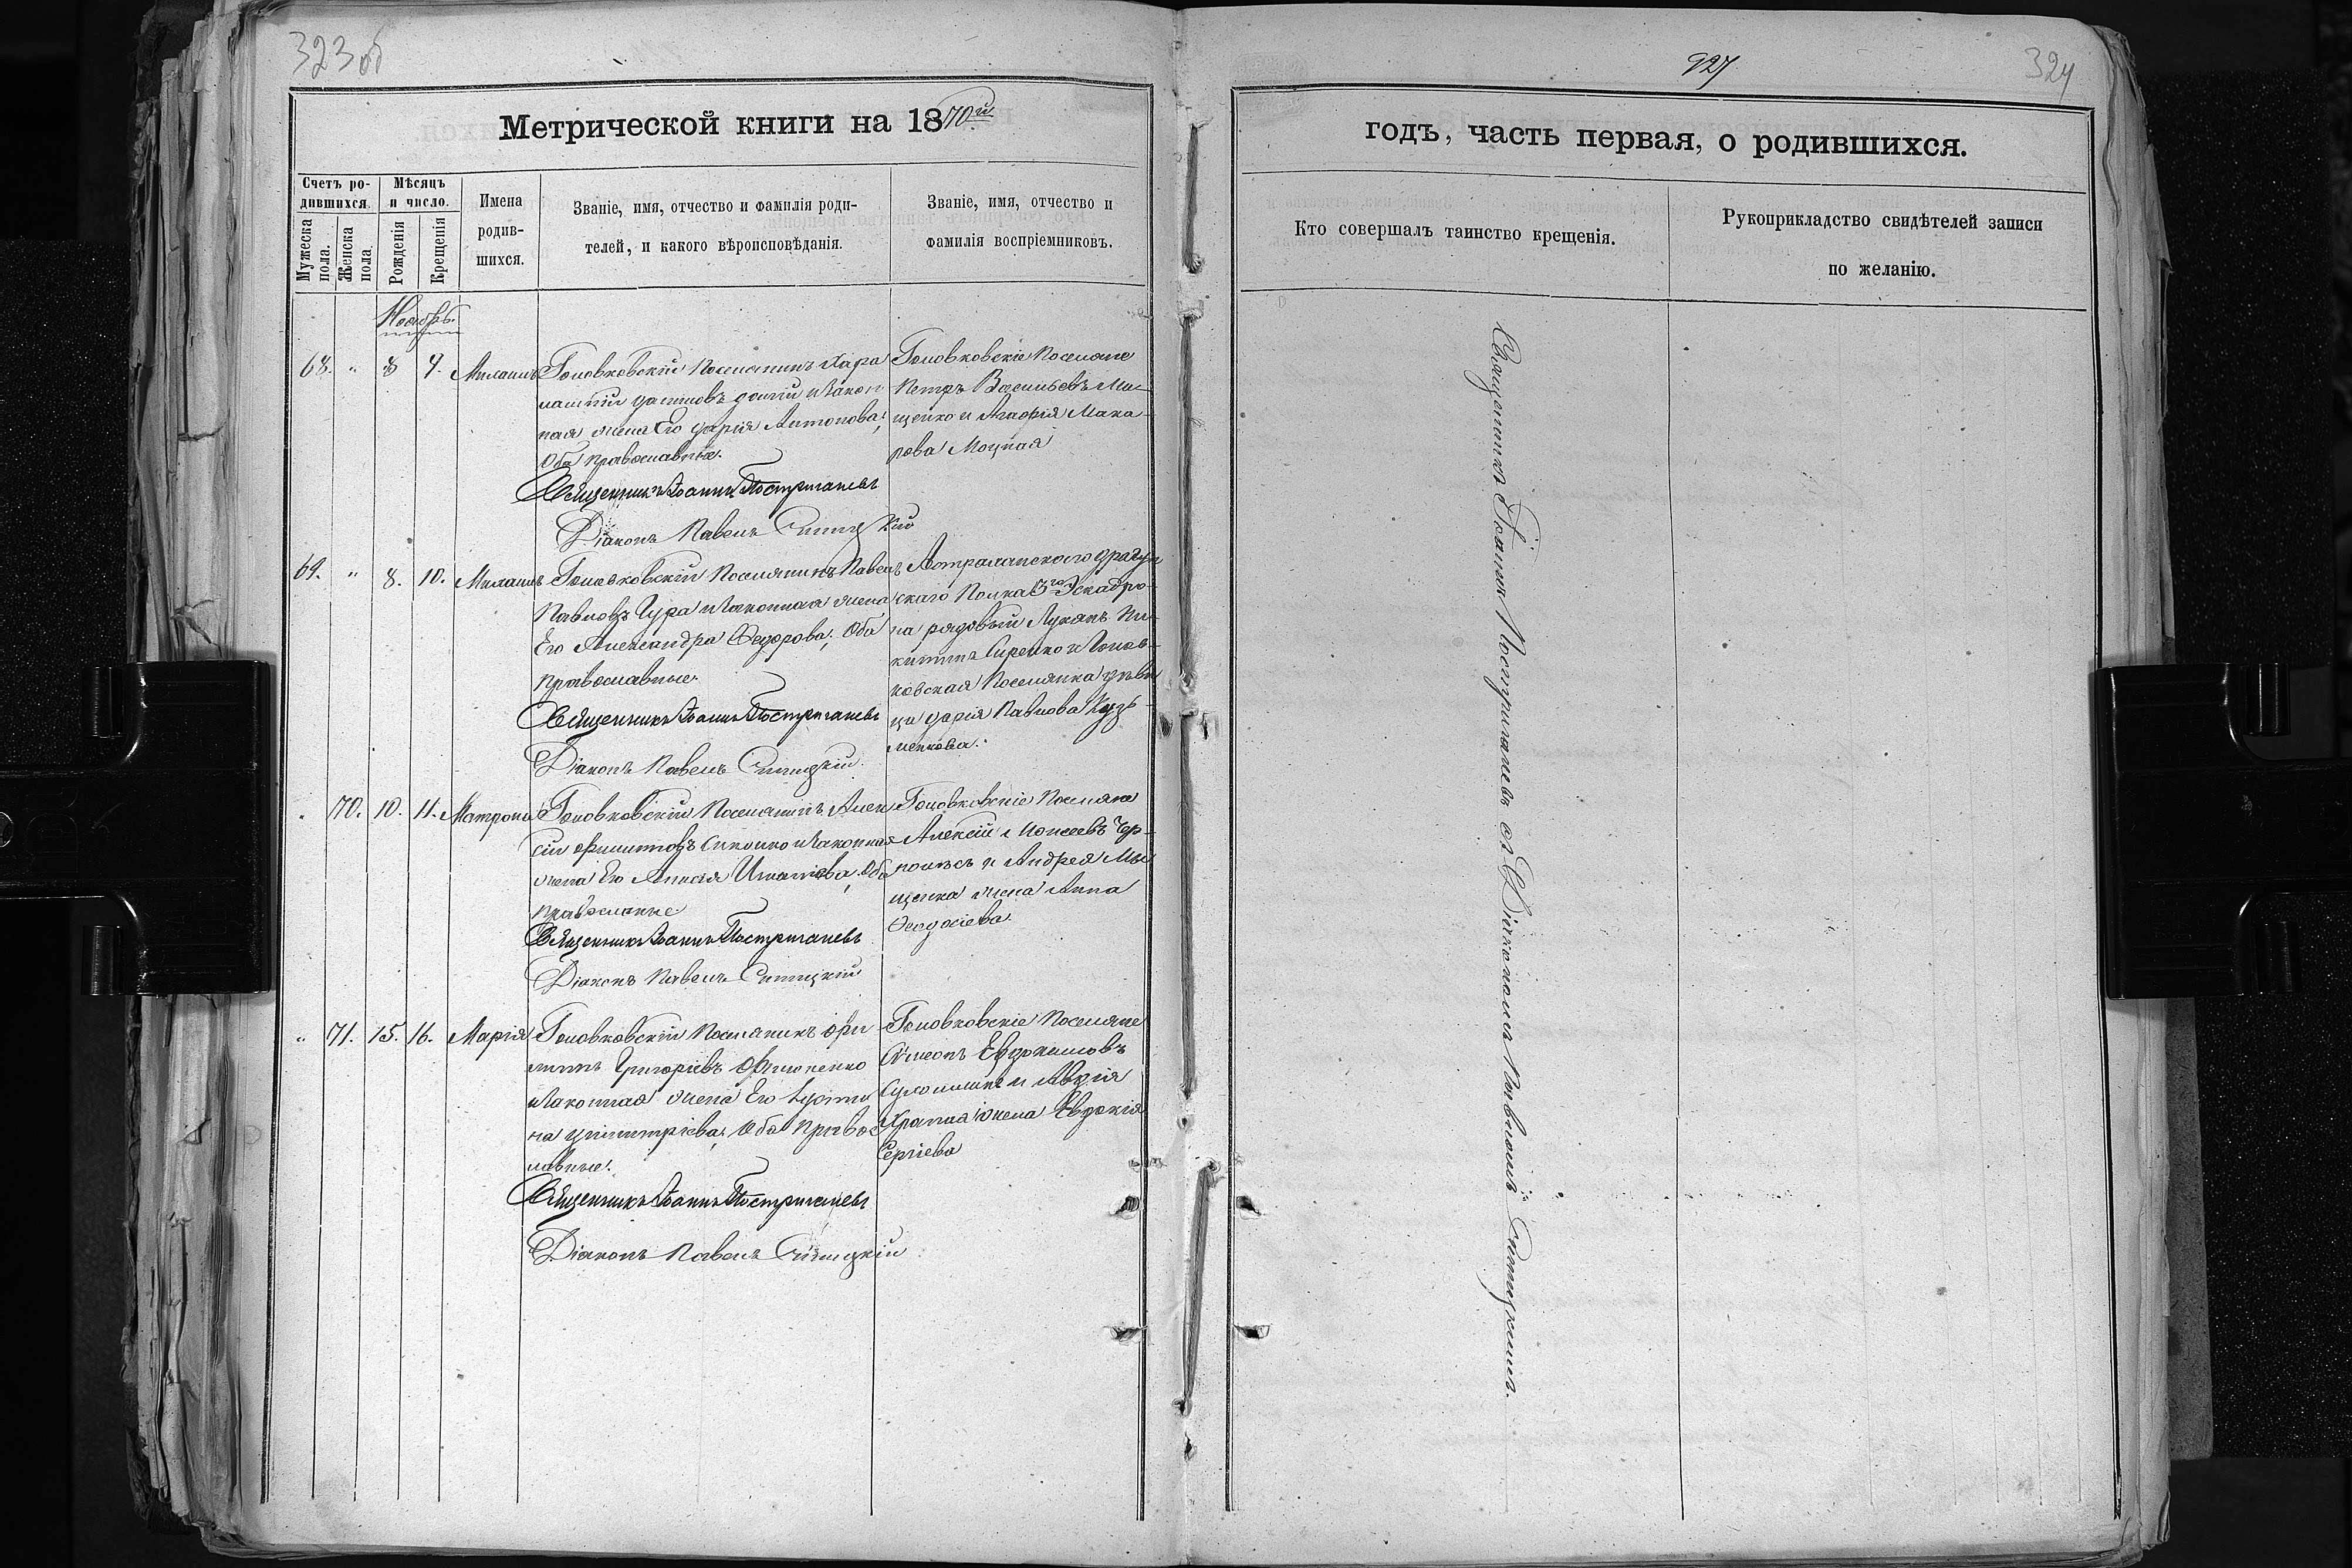 323 об
Метрической книги на 1870й
Счетъ ро-
дившихся.
Мужеска
пола.
Женска
пола.
Мѣсяцъ
и число.
Рожденія
Крещенія
Имена
родив-
шихся.
Званіе, имя, отчество и фамилія роди-
телей, и какого вѣроисповѣданія.
Званіе, имя, отчество и
фамилія воспріемниковъ.
Ноябрь.
68. " 8 9. Михаилъ
Головковскій Поселянинъ Хара
лампій и закон
ная жена Его Дарія Антонова;
Оба православные.
Священникъ Іоаннъ Постригачевъ
Діаконъ Павелъ Ситницкій
Головковскіе Поселяне
Петръ Васильевъ Ми-
щенко и Агафія Мака-
рова Моцная
69. " 8. 10. Михаилъ
Головковскій Поселянинъ Павелъ
Павловъ Чура и законная жена
Его Александра Федорова; Оба
православные.
Священникъ Іоаннъ Постригачевъ
Діаконъ Павелъ Ситницкій.
Астраханского Драгун
скаго Полка 3го Эскадро-
на рядовый Лукавъ Ни-
китинъ Сиренко и Голов-
ковская Поселянка дѣви
ца Дарія Павлова Кузь-
менкова.
" 70. 10. 11. Матрона
Головковскій Поселянинъ Алек
сій Филиповъ и законная
жена Его Анисія Игнатіева, Оба
православные
Священникъ Іоаннъ Постригачевъ
Діаконъ Павелъ Ситницкій
Головковскіе Поселяне
Алексій Моисеевъ Чер-
ноивъ и Андрея Ми
щенка жена Анна
Феодосіева.
" 71. 15. 16. Марія
Головковскій Поселянинъ Фи
липъ Григоріевъ Филоненко
и законная жена Его Іусти
на Димитріева; Оба правос
лавные.
Священникъ Іоаннъ Постригачевъ
Діаконъ Павелъ Ситницкій
Головковскіе Поселяне
Симеонъ Евдокимовъ
и
жена Евдокія
Сергіева
927
324
годъ, часть первая, о родившихся.
Кто совершалъ таинство крещенія.
Рукоприкладство свидѣтелей записи
по желанію.
Священникъ Іоаннъ Постригачевъ съ Діакономъ Павломъ Ситницкимъ.